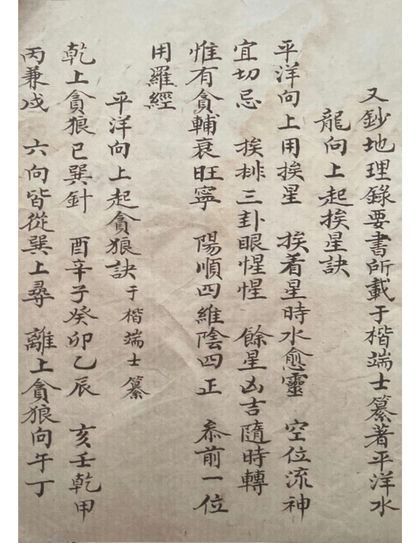 又鈔地理錄要書所載于楷端士纂著平洋水
龍向上起挨星訣
平洋向上用挨星　挨着星時水愈靈　空位流神
宜切忌　挨排三卦眼惺惺　餘星凶吉隨時轉
惟有貪輔衰旺寧　陽順四維陰四正　叅前一位
用羅經
平洋向上起貪狼訣　于楷端士纂
乾上貪狼巳巽針　酉辛子癸卯乙辰　亥壬乾甲
丙兼戌　六向皆從巽上尋　離上貪狼向午丁